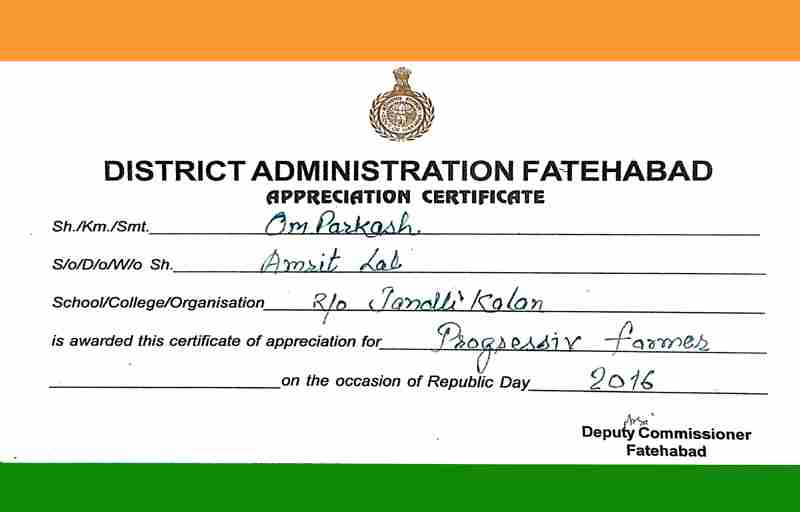 DISTRICT ADMINISTRATION FATEHABAD
APPRECIATION CERTIFICATE
Sh./Km./Smt. Om Parkash.
S/o/D/o/W/o Sh. Amrit Lal
School/College/Organisation R/o Jandli Kalan
is awarded this certificate of appreciation for Progressiv farmer
on the occasion of Republic Day 2016
Deputy Commissioner
Fatehabad